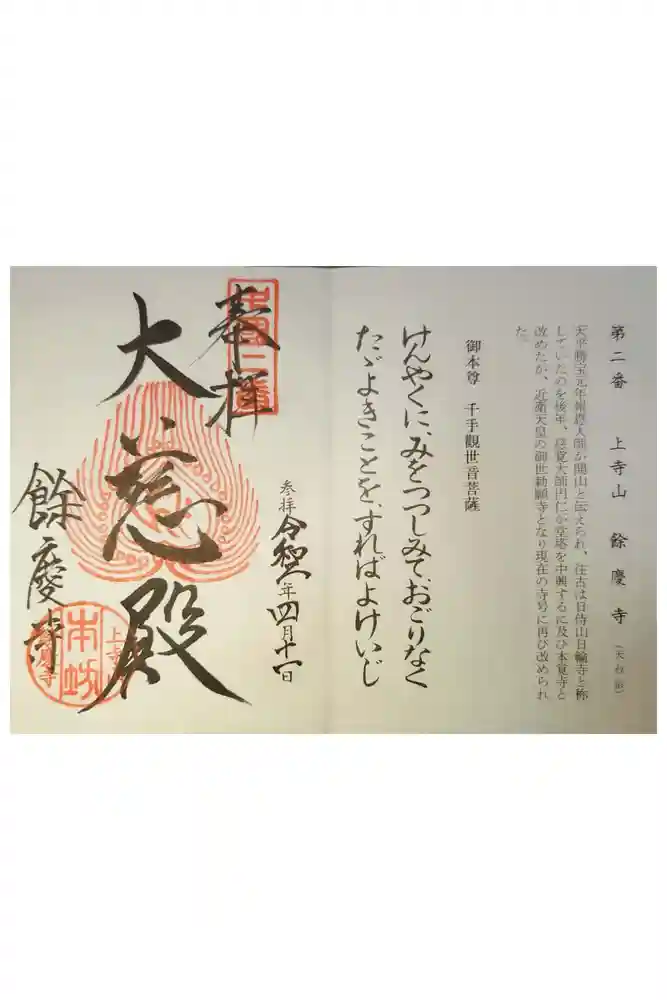 第二番　上寺山　餘慶寺（天台宗）
天平勝宝元年報恩大師が開山と伝えられ、往古は日待山日輪寺と称
していたのを後年、慈覚大師円仁が堂塔を中興するに及び本覚寺と
改めたが、近衛天皇の御世勅願寺となり現在の寺号に再び改められ
た。
御本尊　千手観世音菩薩
けんやくに、みをつつしみて、おごりなく
たゞよきことを、すればよけいじ
奉拝
参拝 令和 年四月十一日
大慈殿
餘慶寺
上寺
本坊